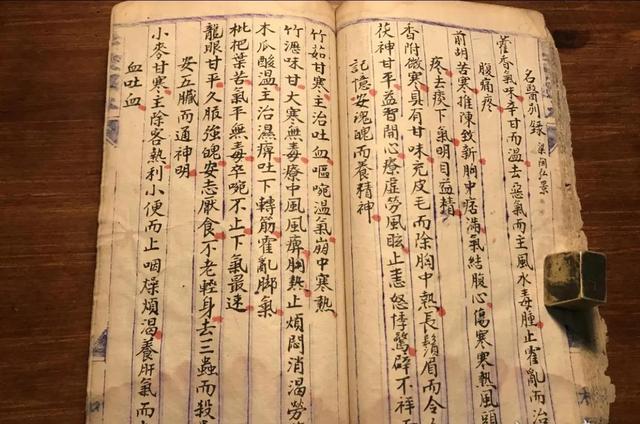 名醫別錄 梁陶弘景
藿香氣味辛甘而溫去惡氣而主風水毒腫止霍亂而治
腹痛疼
前胡苦寒推陳致新胸中痞滿氣結腹心傷寒寒熱風頭
疼去痰下氣明目益精
香附微寒具有甘味充皮毛而除胸中熱長鬚眉而令
茯神甘平益智開心療虛勞風眩止恚怒悸驚辟不祥而
記憶安魂魄而養精神
竹茹甘寒主治吐血嘔啘溫氣崩中寒熱
竹瀝味甘大寒無毒療中風風痹胸熱止煩悶消渴勞
木瓜酸溫主治濕痹吐下轉筋霍亂脚氣
枇杷葉苦氣平無毒卒啘不止下氣最速
龍眼甘平久服強魄安志厭食不老輕身去三蟲而殺
安五臟而通神明
小麥甘寒主除客熱利小便而止咽燥煩渴養肝氣而
血吐血